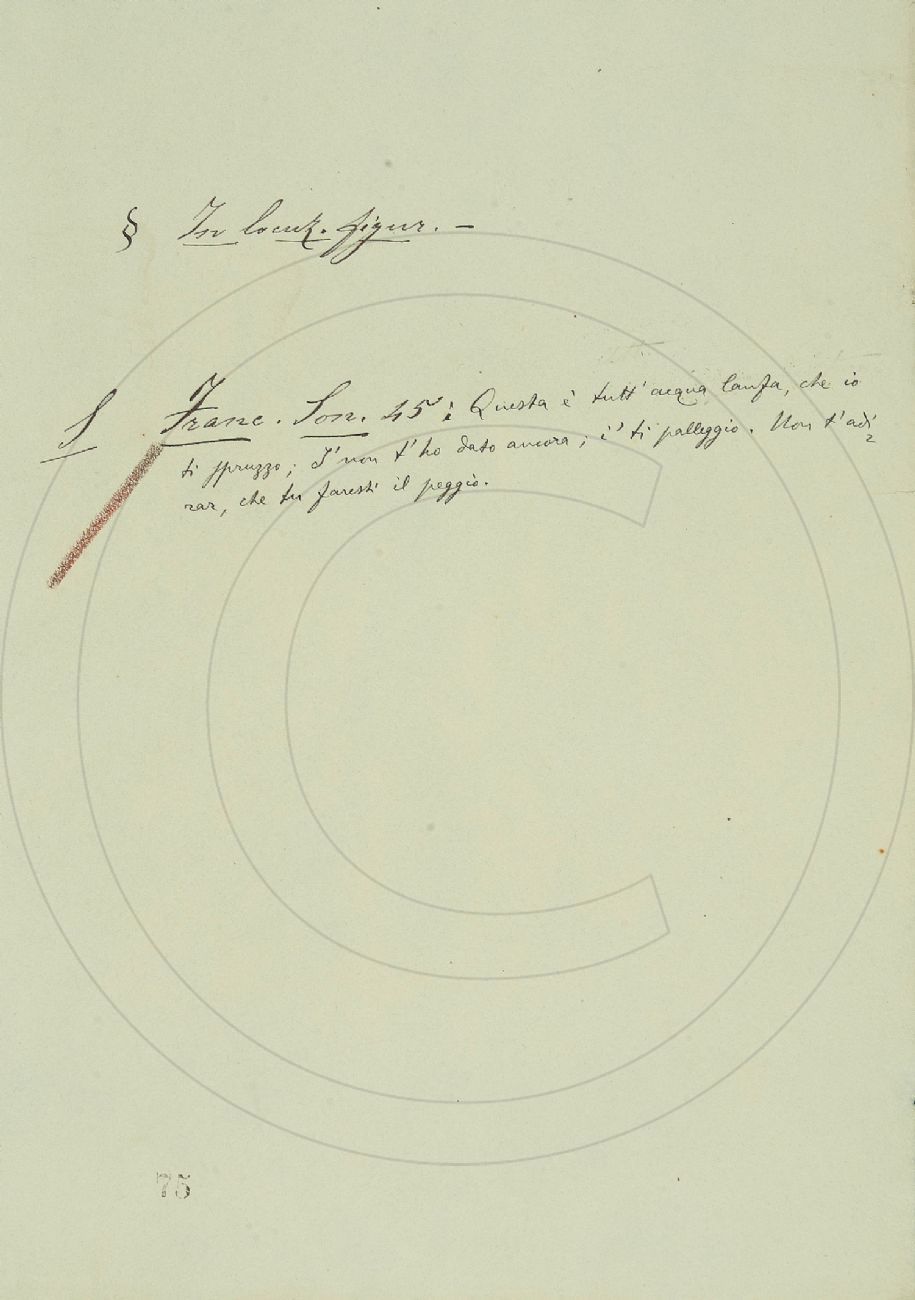 § In locuz. figur. –
S Franc. Son. 45: Questa è tutt'acqua lanfa, che io
ti spruzzo; I' non t'ho dato ancora; i' ti palleggio. Non t'adi
rar, che tu faresti il peggio.
75